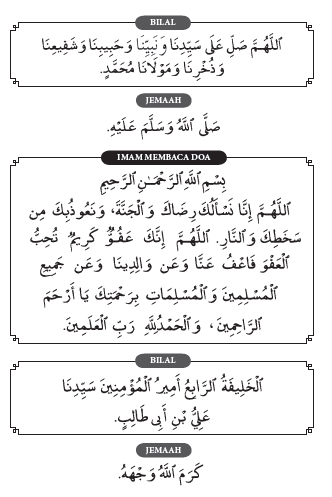 BILAL
اَللّٰهُمَّ صَلِّ عَلَى سَيِّدِنَا وَنَبِيِّنَا وَحَبِيبِنَا وَشَفِيعِنَا
وَذُخْرِنَا وَمَوْلَانَا مُحَمَّدٍ.
JEMAAH
صَلَّى اللّٰهُ وَسَلَّمَ عَلَيْهِ.
IMAM MEMBACA DOA
بِسْمِ اللّٰهِ الرَّحْمٰنِ الرَّحِيمِ
اَللّٰهُمَّ إِنَّا نَسْأَلُكَ رِضَاكَ وَالْجَنَّةَ، وَنَعُوذُبِكَ مِن
سَخَطِكَ وَالنَّارِ. اَللّٰهُمَّ إِنَّكَ عَفُوٌّ كَرِيمٌ تُحِبُّ
الْعَفْوَ فَاعْفُ عَنَّا وَعَن وَالِدِينَا وَعَن جَمِيعِ
الْمُسْلِمِينَ وَالْمُسْلِمَاتِ بِرَحْمَتِكَ يَا أَرْحَمَ
الرَّاحِمِينَ، وَالْحَمْدُلِلّٰهِ رَبِّ الْعَلَمِينَ.
BILAL
اَلْخَلِيفَةُ الرَّابِعُ أَمِيرُ الْمُؤْمِنِينَ سَيِّدِنَا
عَلِيُّ بْنِ أَبِى طَالِبٍ.
JEMAAH
كَرَمَ اللّٰهُ وَجْهَهُ.